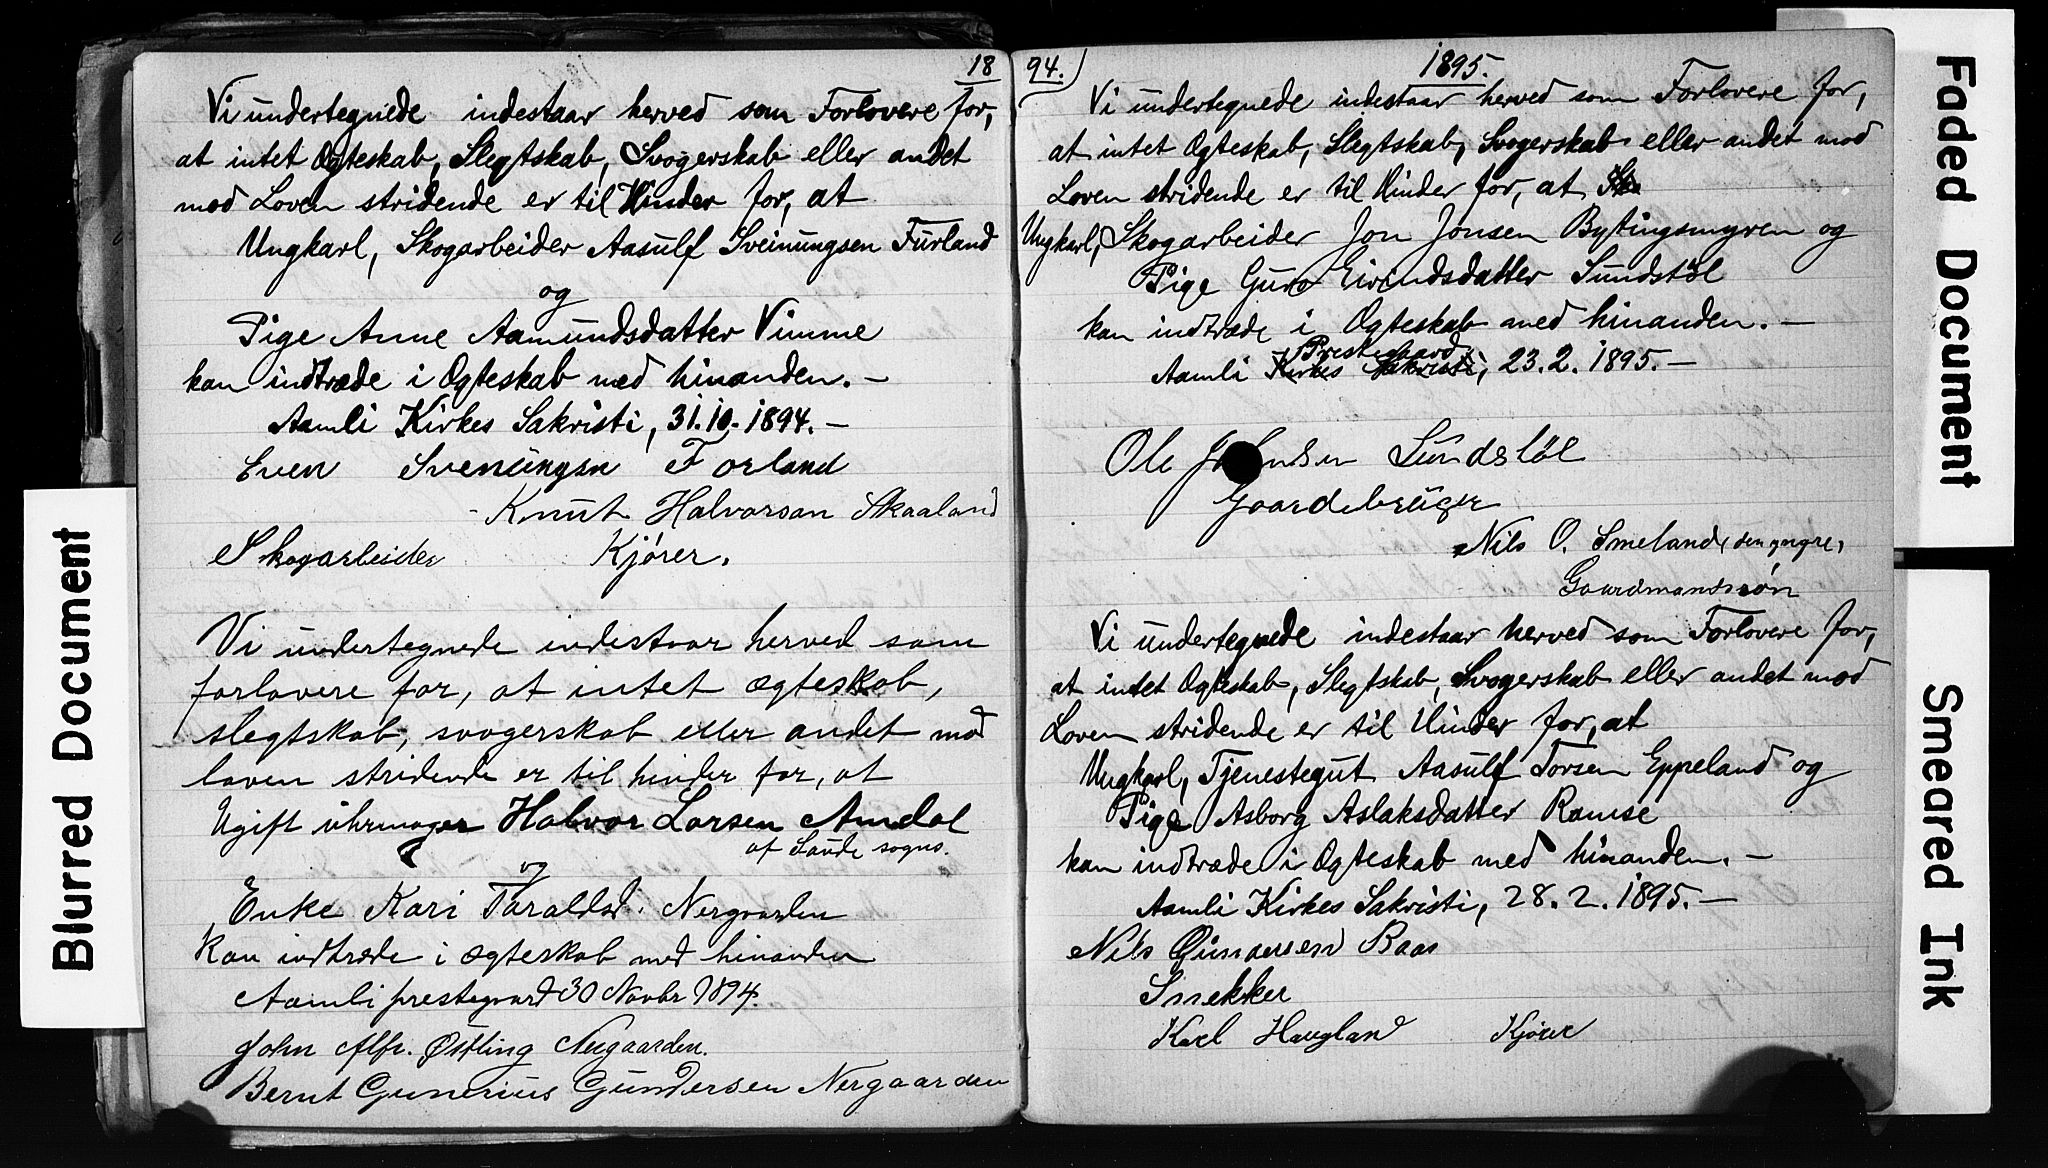 18
Vi undertegnede indestaar herved som Forlovere for,
at intet Ægteskab, Slegtskab, Svogerskab eller andet
mod Loven stridende er til Hinder for, at
Ungkarl, Skogarbeider Aasulf Sveinungsen Furland
og
Pige Anne Aamundsdatter Vimme
kan indtræde i Ægteskab med hinanden. —
Aamli Kirkes Sakristi, 31.10.1894. —
Even Svenungsn Forland
Knut Halvorsan Skaaland
Skogarbeider Kjører.
Vi undertegnede indestaar herved som
forlovere for, at intet ægteskab,
slegtskab, svogerskab eller andet mod
loven stridende er til hinder for, at
Ugift uhrmager Halvor Larsen Amdal
af Saude sogns.
og
Enke Kari Taraldsd. Nergaarden
kan indtræde i ægteskab med hinanden
Aamli prestegaard 30 Novbr 1894.
John Alfr. Østling Nergaarden.
Bernt Gunerius Gundersen Nergaarden
94.
1895.
Vi undertegnede indestaar herved som Forlovere for,
at intet Ægteskab, Slegtskab, Svogerskab eller andet mod
Loven stridende er til Hinder for, at Sko
Ungkarl, Skogarbeider Jon Jonsen Bytingsmyren og
Pige Guro Eivindsdatter Sundstöl
kan indtræde i Ægteskab med hinanden. —
Prestegaard
Aamli Kirkes Sakristi, 23.2.1895. —
Ole Sundstöl
Gaardebruger
Nils O. Smeland, den yngre,
Gaardmandssön
Vi undertegnede indestaar herved som Forlovere for,
at intet Ægteskab, Slegtskab, Svogerskab eller andet mod
Loven stridende er til Hinder for, at
Ungkarl, Tjenestegut Aasulf Torsen Eppeland og
Pige Asborg Aslaksdatter Ramse
kan indtræde i Ægteskab med hinanden. —
Aamli Kirkes Sakristi, 28.2.1895. —
Nils Gunnersen Baas
Snekker
Karl Haugland Kjører
Blurred Document
Faded Document
Smeared Ink